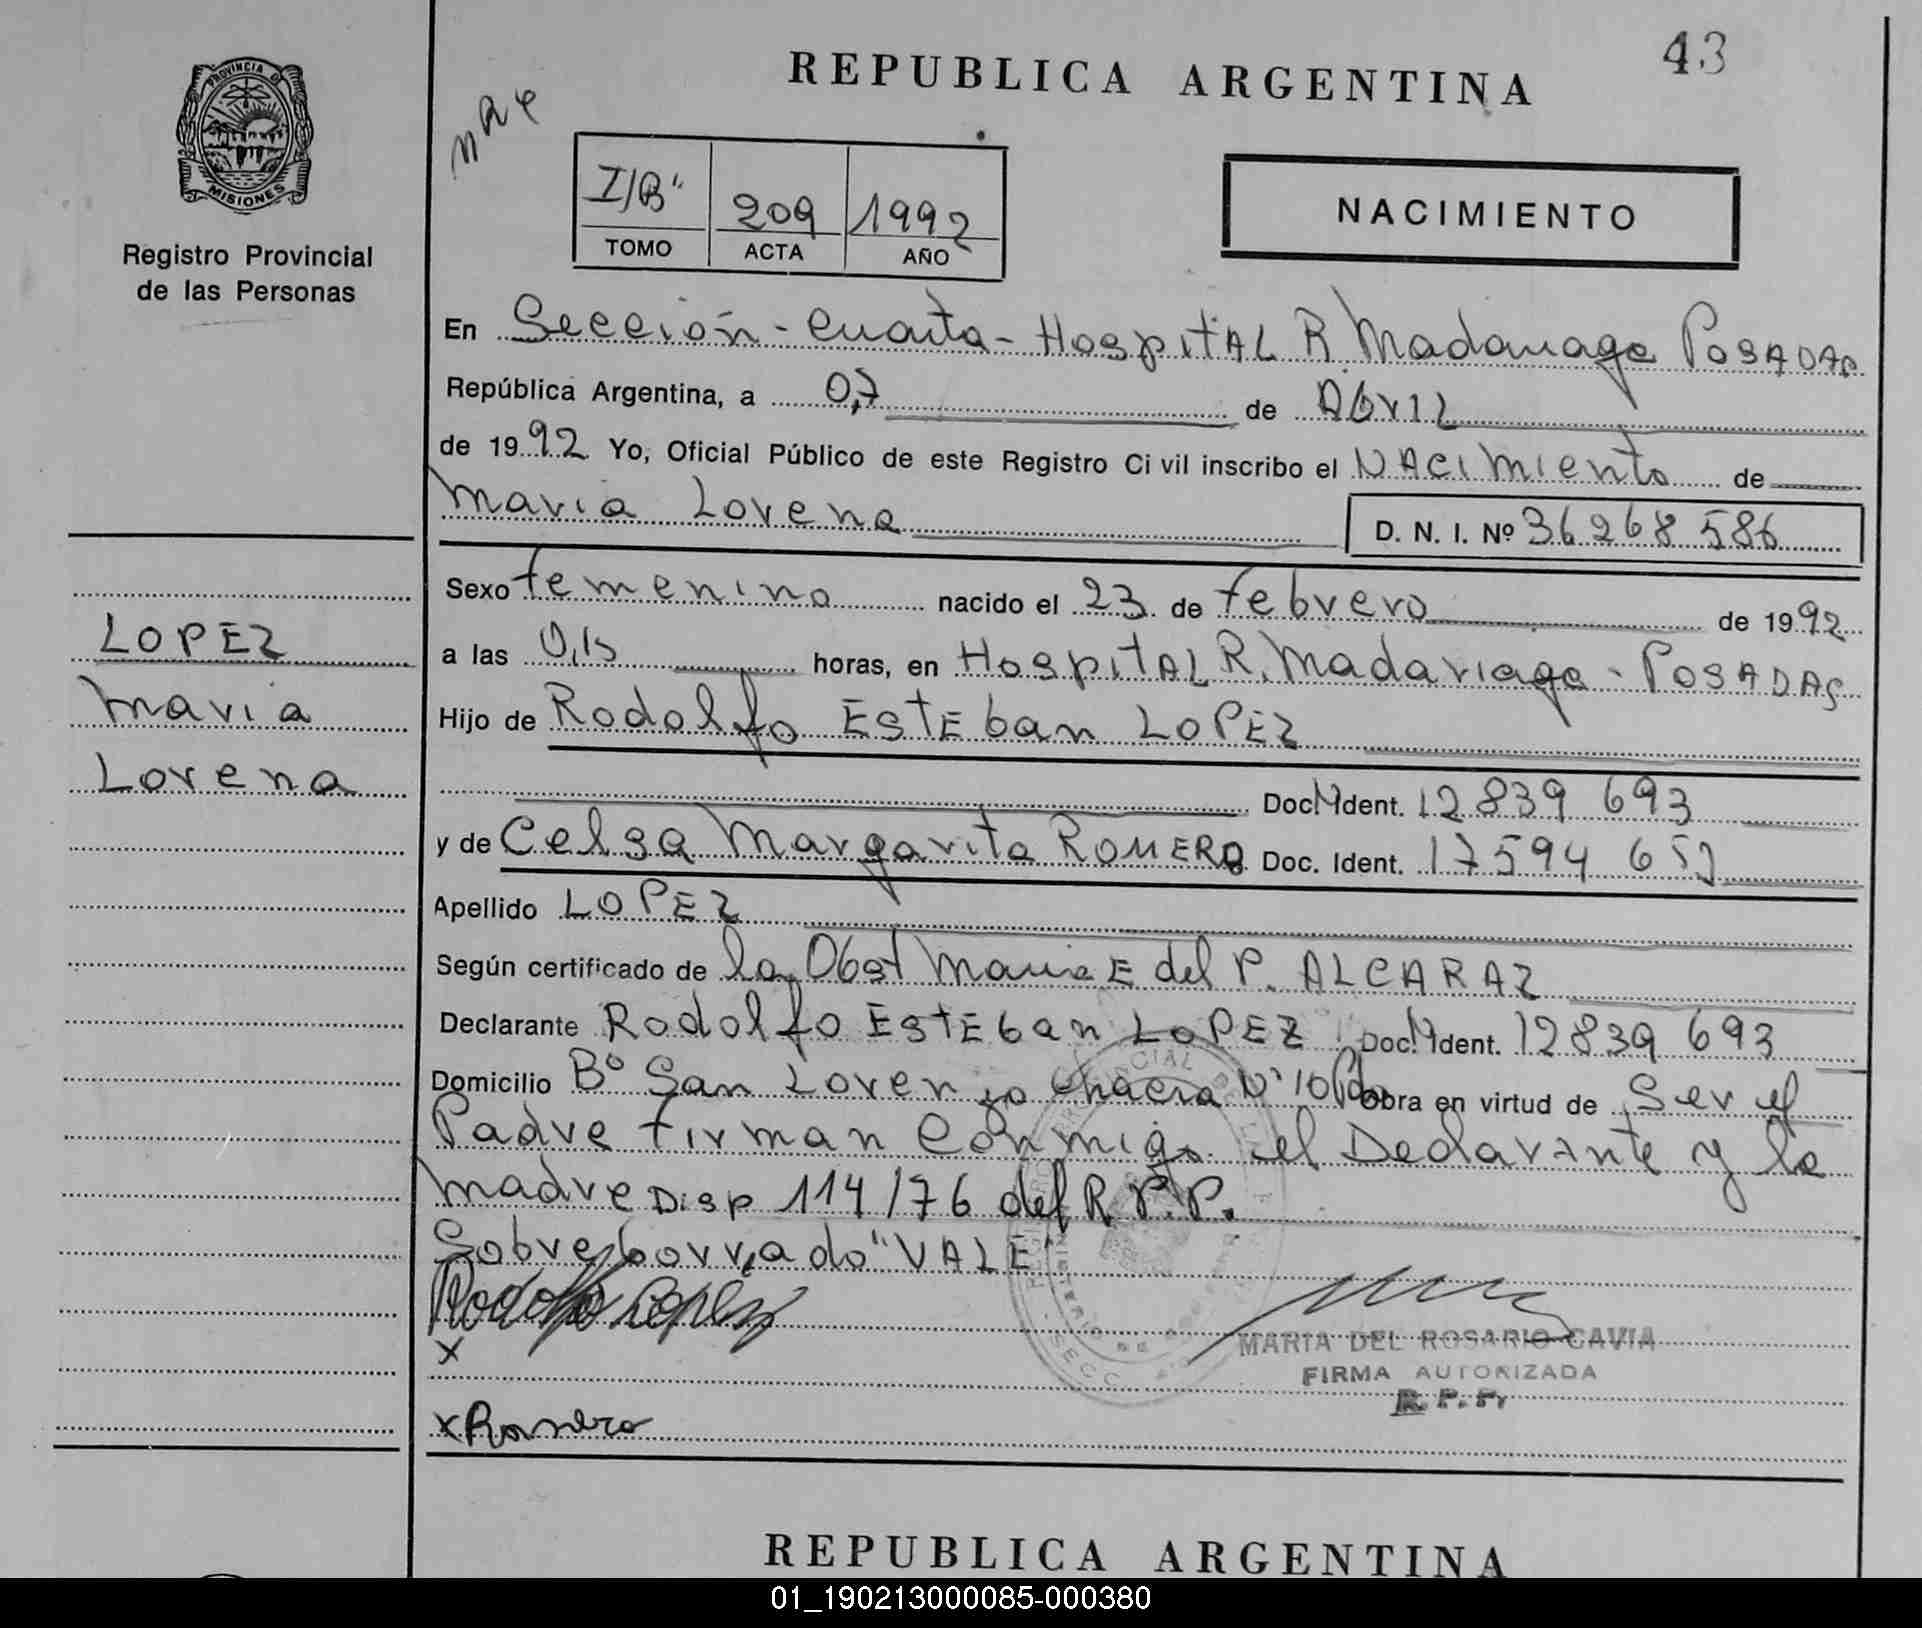 43
REPUBLICA ARGENTINA
PROVINCIA D
MISIONES
Registro Provincial
de las Personas
I/B" 209 1992
TOMO ACTA AÑO
NACIMIENTO
En Sección - Cuarta - HospitAL R Madariaga POSADAS
República Argentina, a 07 de Abril
de 1992 Yo, Oficial Público de este Registro Ci vil inscribo el NAcimiento de
Maria Lorena D. N. I. Nº 36 268 586
Sexo femenino nacido el 23 de febrero de 1992
a las 0,15 horas, en HospitAL R. Madariaga - POSADAS
Hijo de Rodolfo EstEban LOPEZ
Doc. M Ident. 12 839 693
y de Celsa Margarita ROMERO Doc. Ident. 17 594 652
Apellido LOPEZ
Según certificado de la Obst Maria E del P. ALCARAZ
Declarante Rodolfo EstEban LOPEZ Doc. M Ident. 12 839 693
Domicilio Bº San Lorenzo chacra Nº 10 Pdo Obra en virtud de Ser el
Padre firman Conmigo el Declarante y la
madre Disp 114/76 del R P.P.
Sobreborrado "VALE"
Rodolfo Lopez
X
MARIA DEL ROSARIO CAVIA
FIRMA AUTORIZADA
R. P. P.
X Romero
LOPEZ
Maria
Lorena
REPUBLICA ARGENTINA
01_190213000085-000380